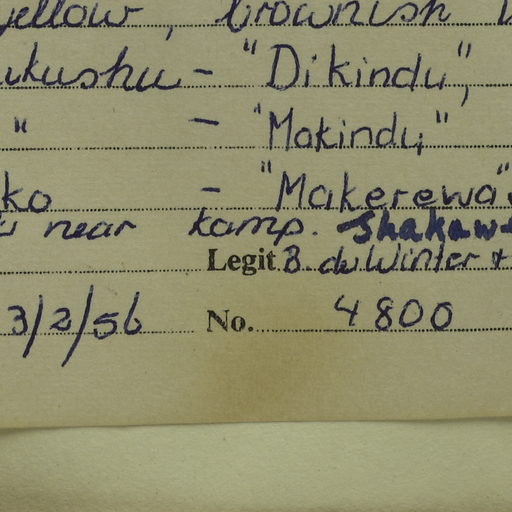 yellow, brownish
ukushu - "Dikindu",
" - "Makindu"
ko - "Makerewa"
near kamp. Shakaw
Legit B. de Winter +
3/2/56 No. 4800